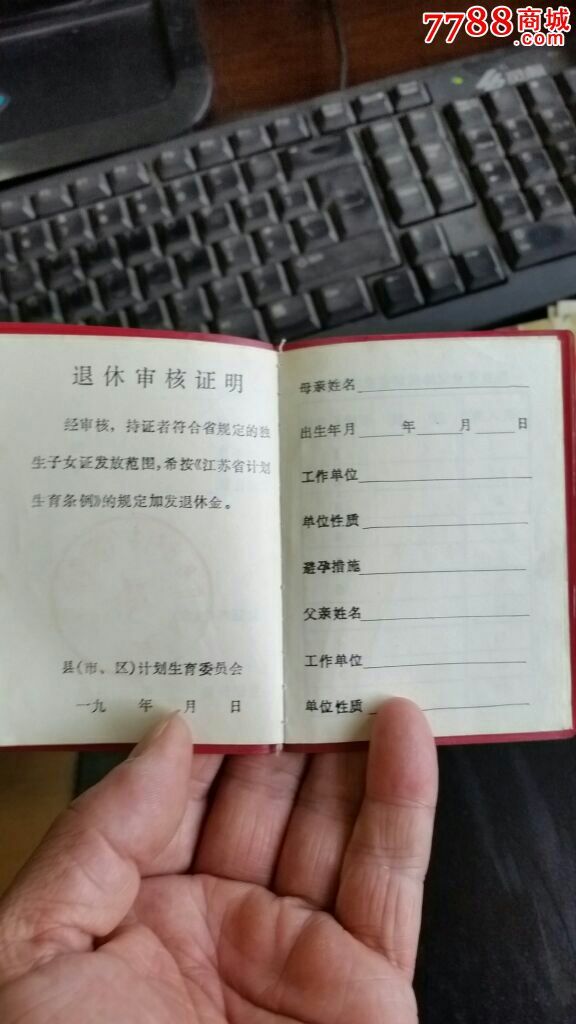 7788商城
.com
退休审核证明
经审核，持证者符合省规定的独
生子女证发放范围，希按《江苏省计划
生育条例》的规定加发退休金。
县（市、区）计划生育委员会
一九 年 月 日
母亲姓名
出生年月 年 月 日
工作单位
单位性质
避孕措施
父亲姓名
工作单位
单位性质